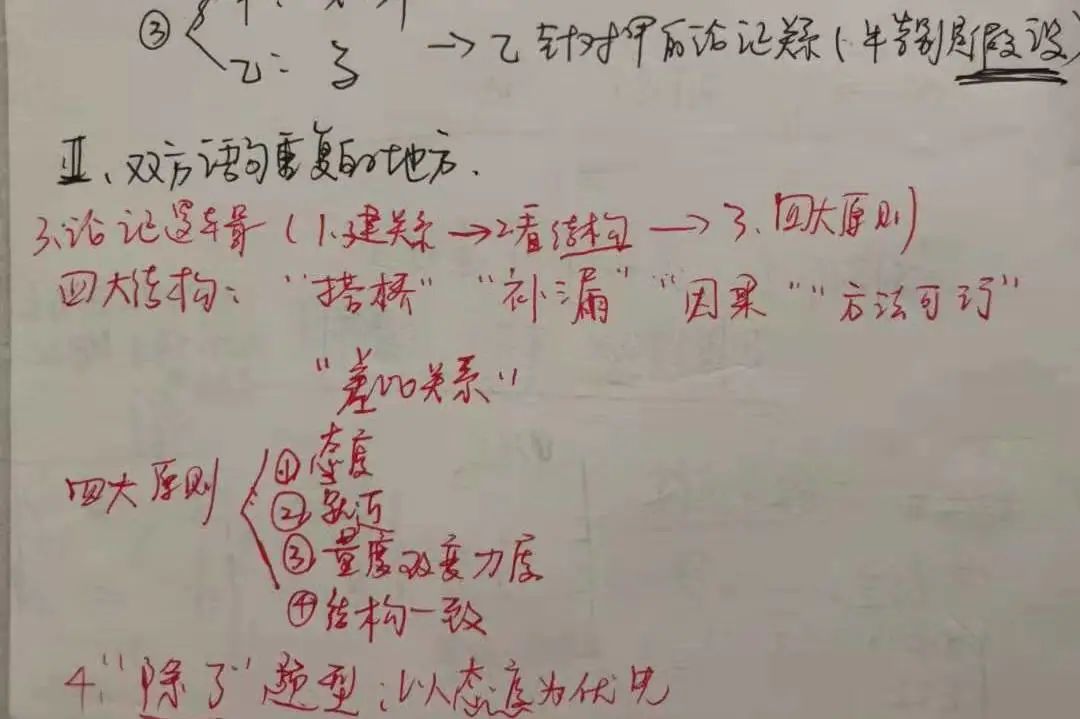 ③
乙: → 乙针对甲的论证关系(特别是假设)
Ⅱ、双方语句重复的地方.
3.论证逻辑(1.建关系→2看结构→3.四大原则)
四大结构: "搭桥" "补漏" "因果" "方法可巧"
"差比关系"
四大原则
①态度
②就近
③量度改变力度
④结构一致
4."除了"题型:以态度为优先